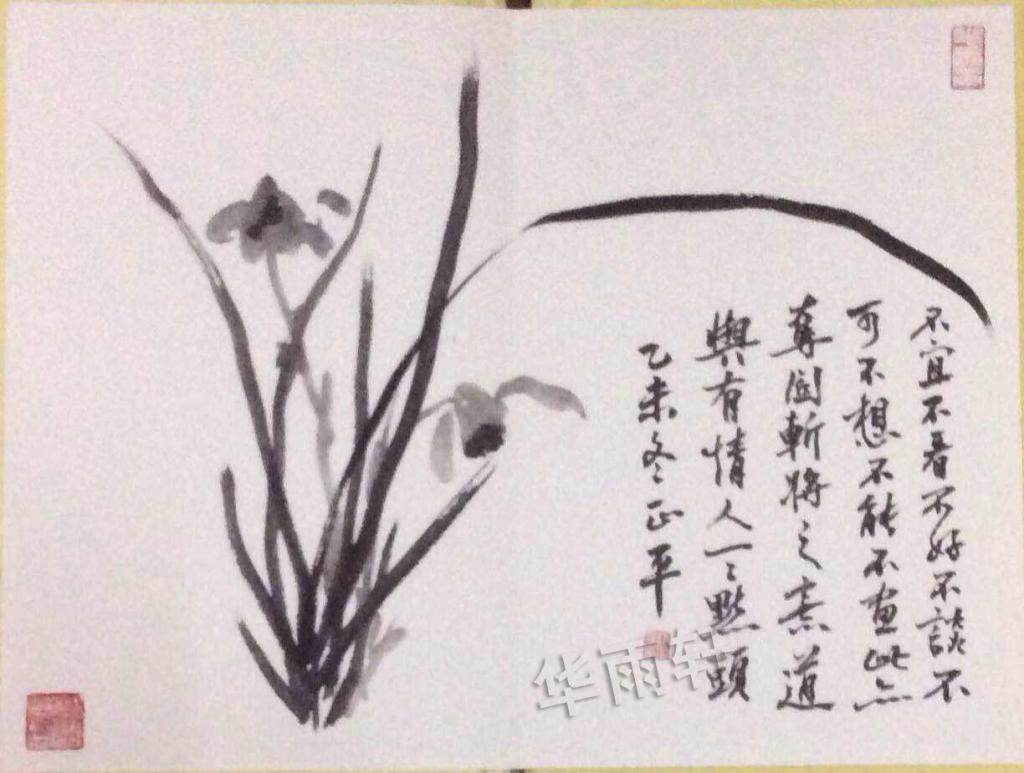 不宜不看不好不談不
可不想不能不画此亦
奪関斬将之意道
與有情人一々點頭
乙未冬正平
华雨轩